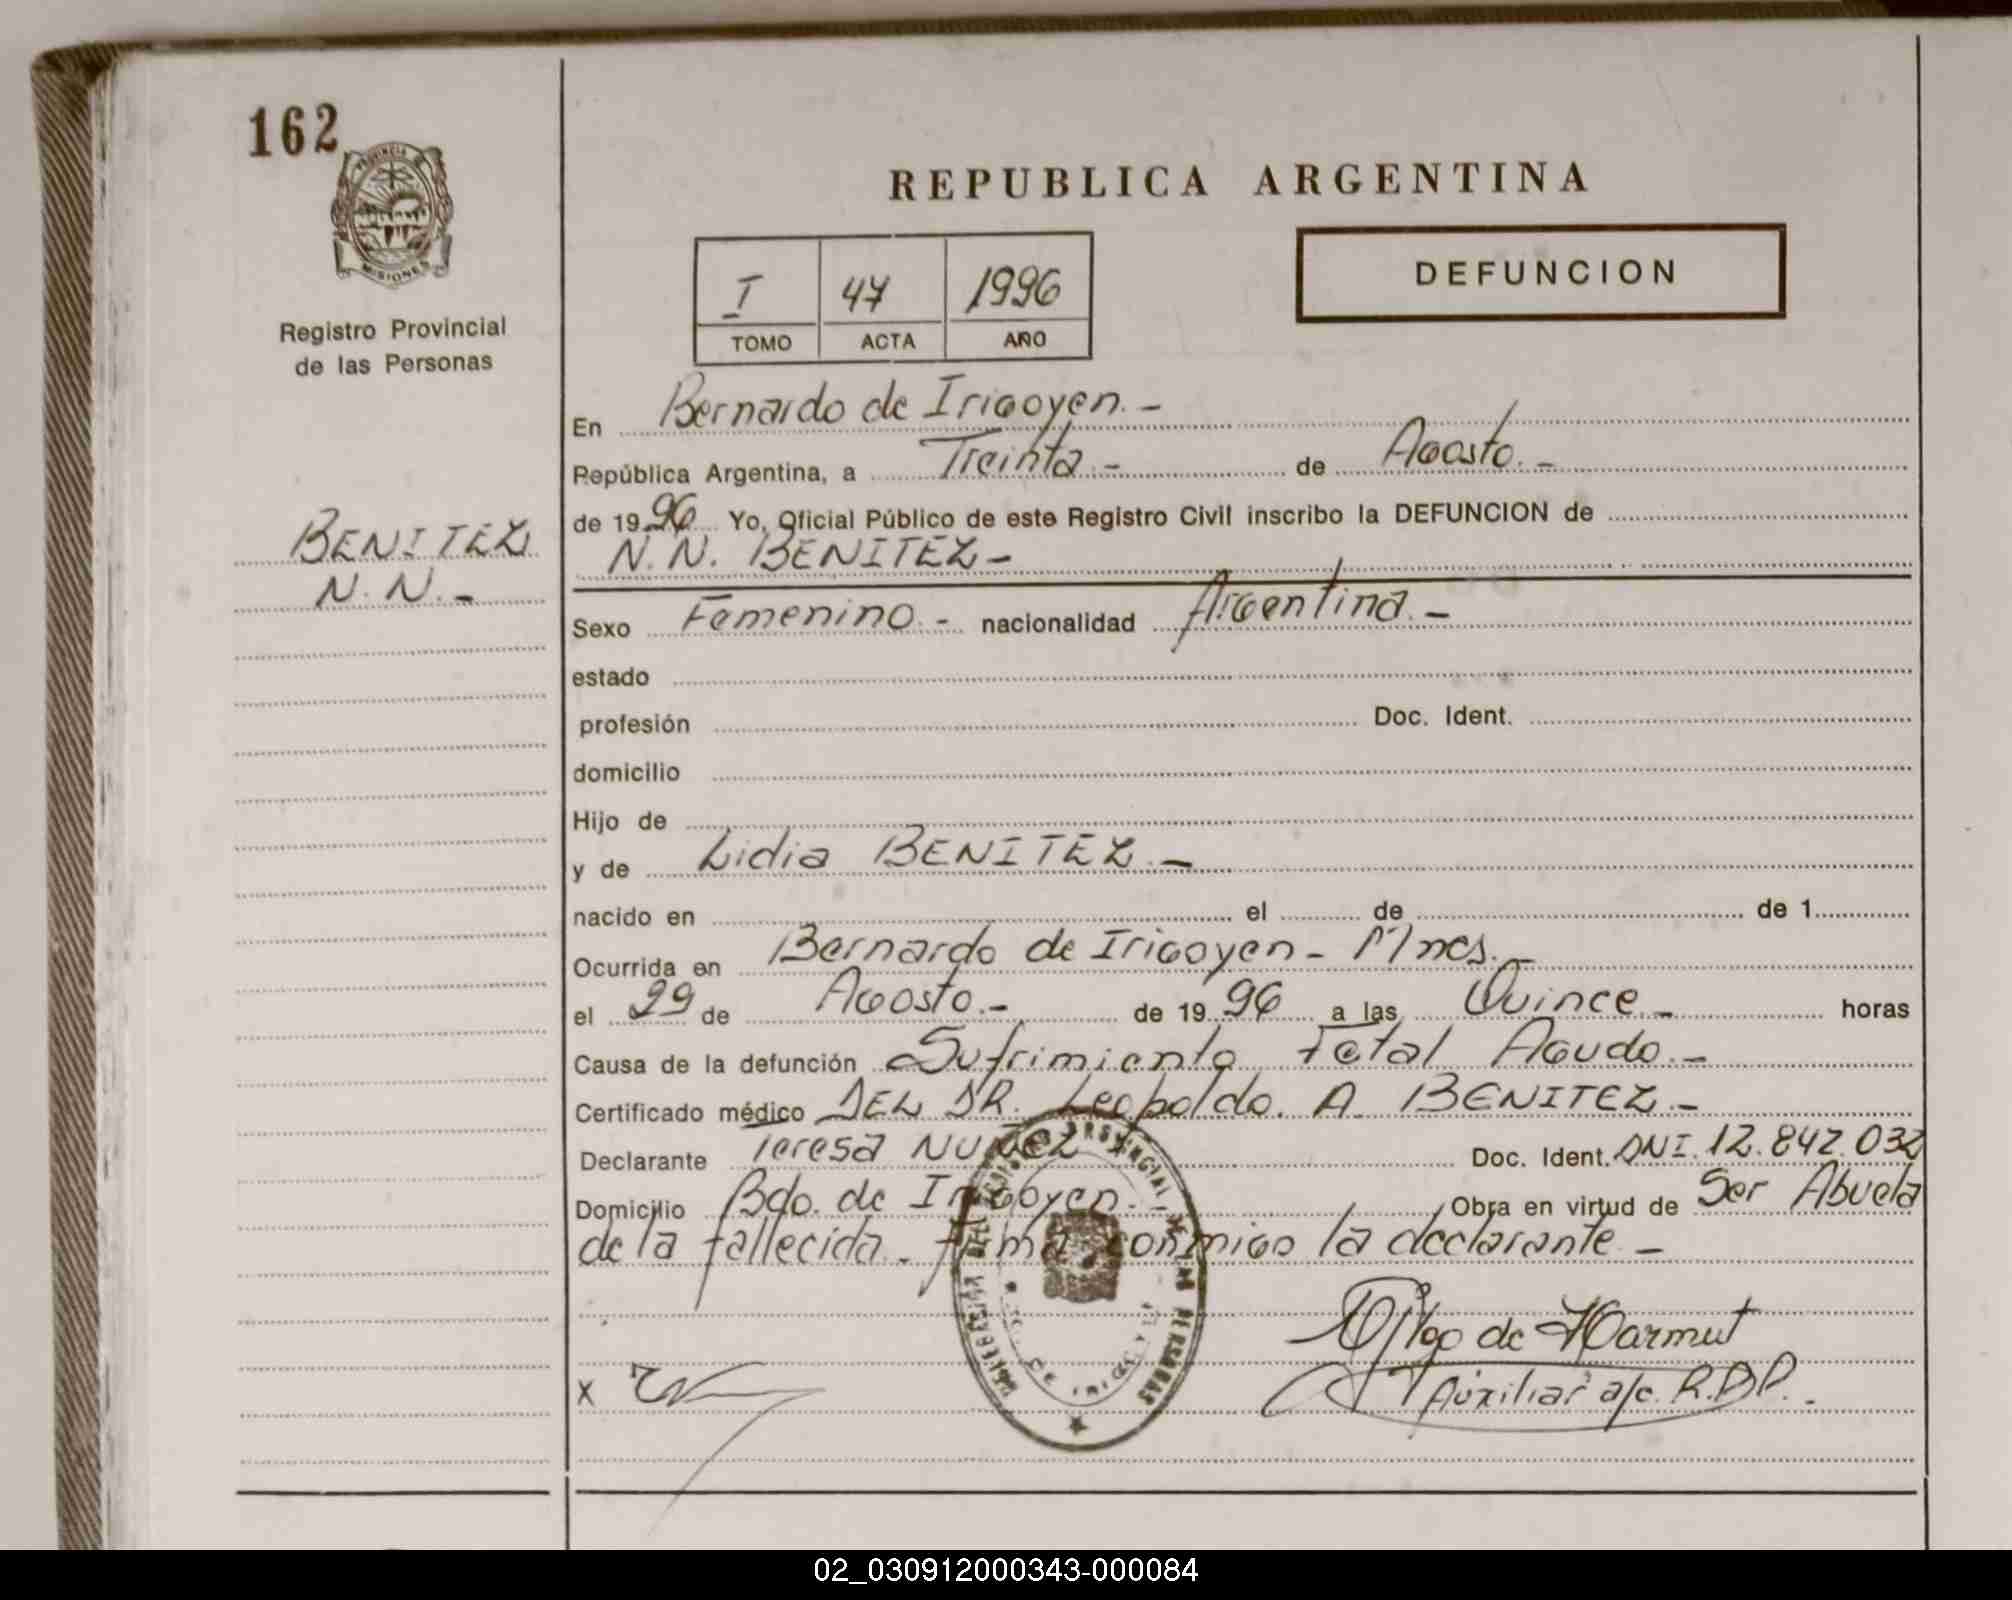 162
PROVINCIA DE
MISIONES
Registro Provincial
de las Personas
REPUBLICA ARGENTINA
I 47 1996
TOMO ACTA AÑO
DEFUNCION
BENITEZ
N.N.-
En Bernardo de Irigoyen.-
República Argentina, a Treinta.- de Agosto.-
de 1996 Yo, Oficial Público de este Registro Civil inscribo la DEFUNCION de
N.N. BENITEZ-
Sexo Femenino.- nacionalidad Argentina.-
estado
profesión Doc. Ident.
domicilio
Hijo de
y de Lidia BENITEZ.-
nacido en el de de 1
Ocurrida en Bernardo de Irigoyen- Mnes.-
el 29 de Agosto.- de 1996 a las Quince.- horas
Causa de la defunción Sufrimiento Fetal Agudo.-
Certificado médico DEL DR. Leopoldo. A. BENITEZ.-
Declarante Teresa NUÑEZ Doc. Ident. DNI. 12.842.032
Domicilio Bdo. de Irigoyen.- Obra en virtud de Ser Abuela
de la fallecida.- Firma conmigo la declarante.-
DELEGACION DEL REGISTRO PROVINCIAL DE LAS PERSONAS
DE IRIGOYEN
X
de Harmut
Auxiliar a/c. R.D.P.-
02_030912000343-000084